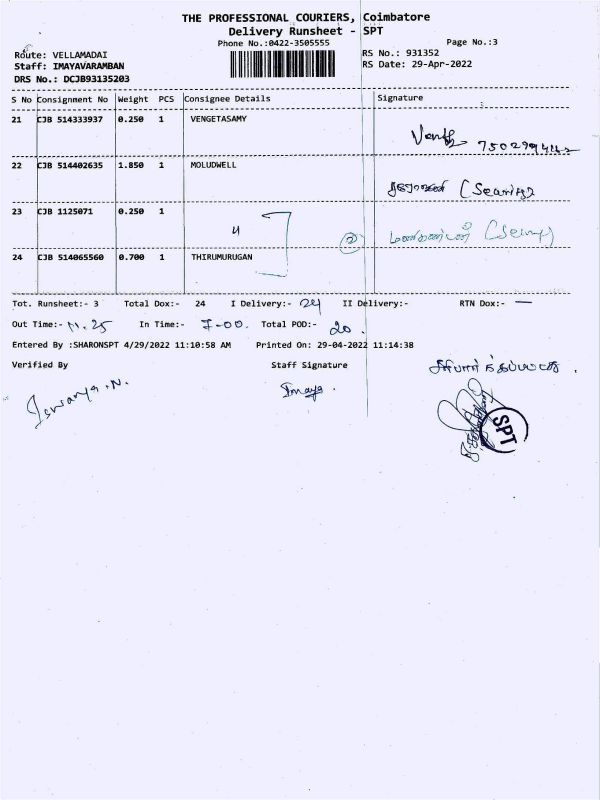 THE PROFESSIONAL COURIERS, Coimbatore
Delivery Runsheet - SPT
Phone No.:0422-3505555
Page No.:3
Route: VELLAMADAI
RS No.: 931352
Staff: IMAYAVARAMBAN
RS Date: 29-Apr-2022
DRS No.: DCJB93135203
S No Consignment No Weight PCS Consignee Details Signature
21 CJB 514333937 0.250 1 VENGETASAMY
22 CJB 514402635 1.850 1 MOLUDWELL
23 CJB 1125071 0.250 1 "
24 CJB 514065560 0.700 1 THIRUMURUGAN
Tot. Runsheet:- 3 Total Dox:- 24 I Delivery:- 24 II Delivery:- RTN Dox:- —
Out Time:- 11.25 In Time:- 7-00. Total POD:- 20.
Entered By :SHARONSPT 4/29/2022 11:10:58 AM Printed On: 29-04-2022 11:14:38
Verified By Staff Signature
Imaya.
SPT